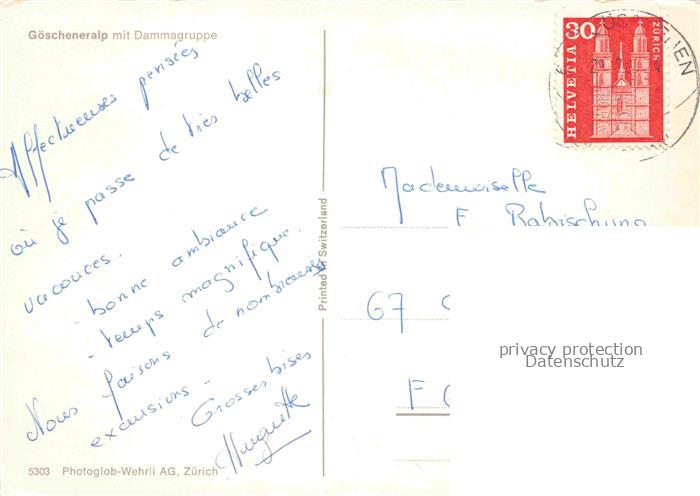 Göscheneralp mit Dammagruppe
Affectueuses pensées
où je passe de très belles
vacances.
- bonne ambiance
- temps magnifique.
Nous faisons de nombreuses
excursions -
Grosses bises
Huguette
5303 Photoglob-Wehrli AG, Zürich
Printed in Switzerland
30
HELVETIA
ZÜRICH
Mademoiselle
F. Babischung
67
F
privacy protection
Datenschutz